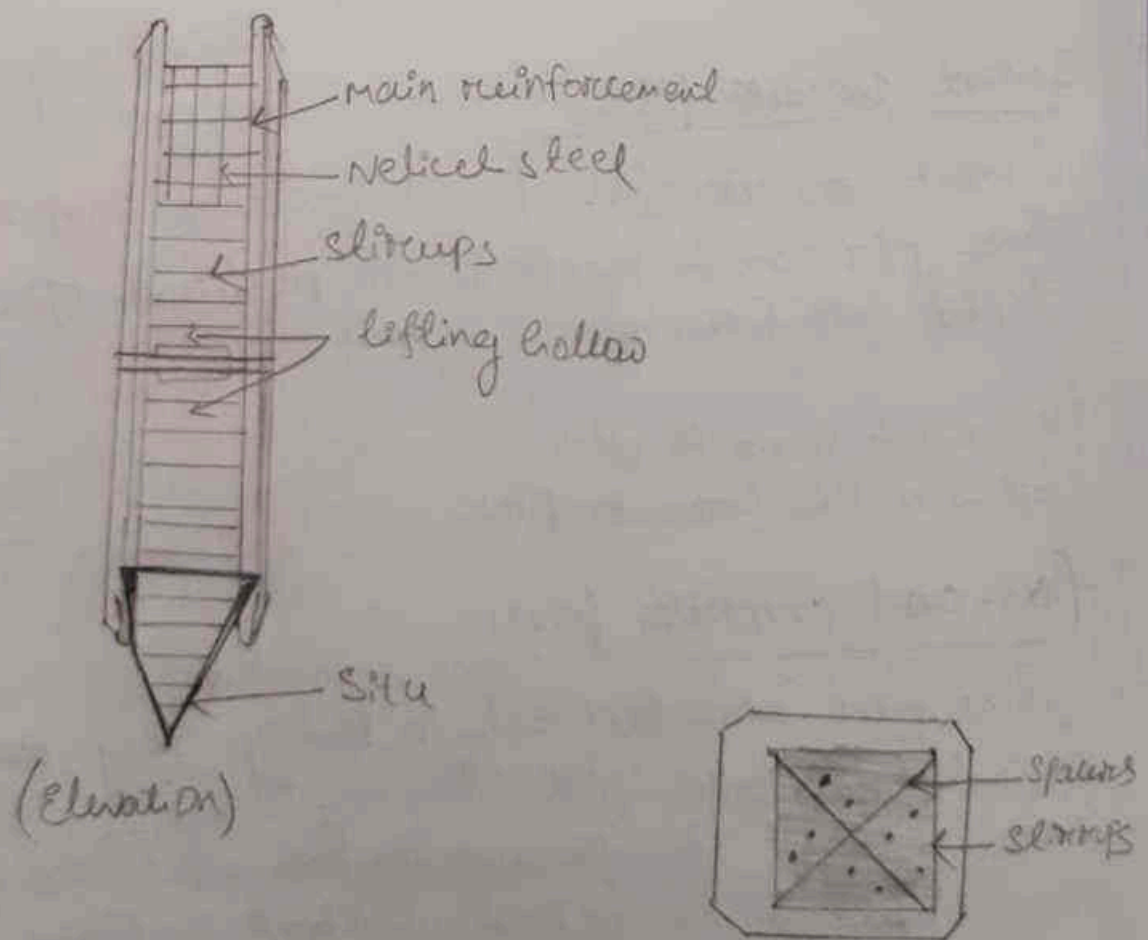 main reinforcement
Helical steel
stirrups
lifting hollow
Situ
(Elevation)
spacers
stirrups